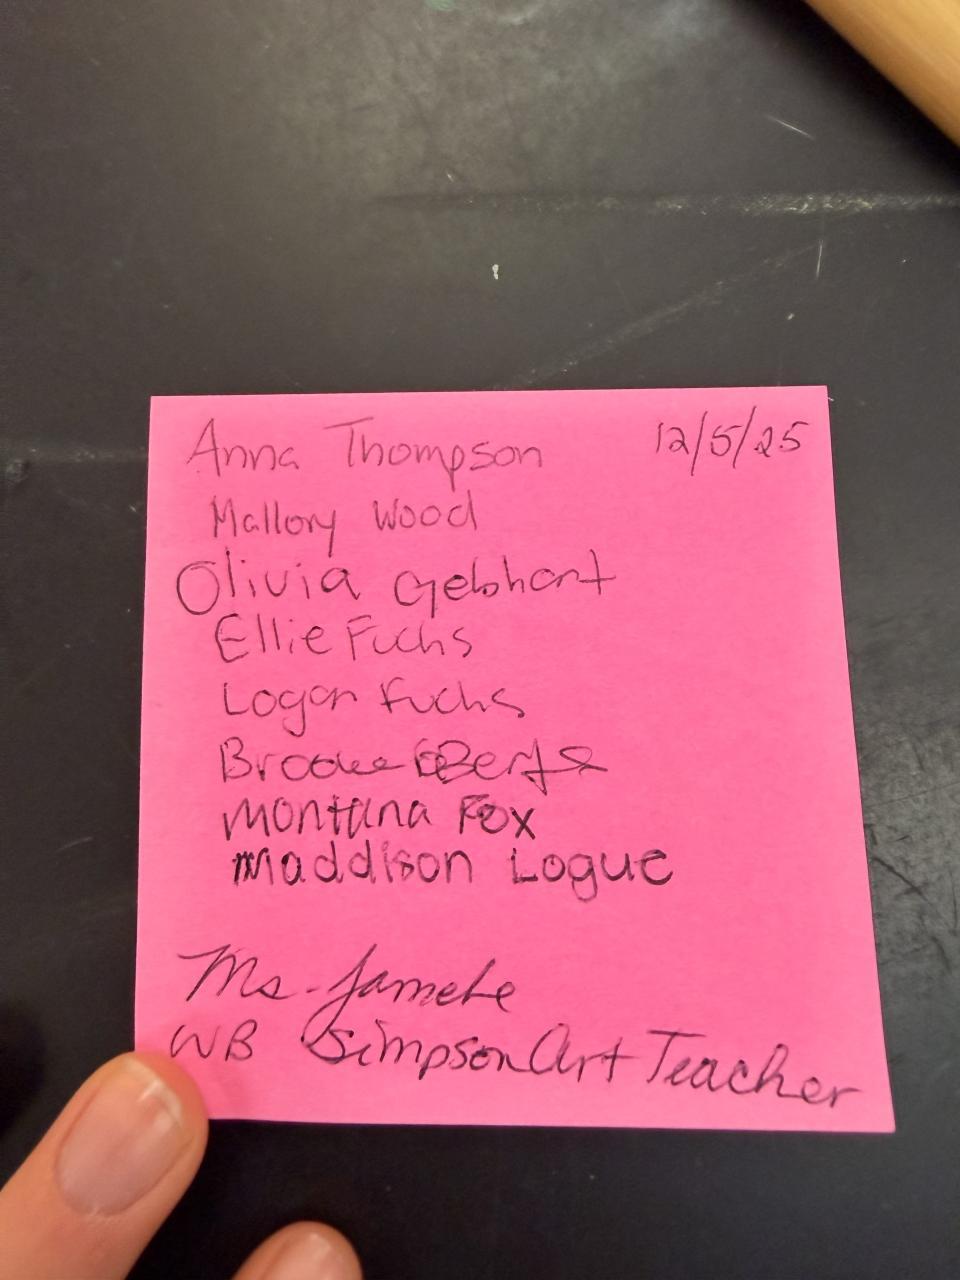 Anna Thompson 12/5/25
Mallory Wood
Olivia Gebhart
Ellie Fuchs
Logan Fuchs
Brooke
Montana Fox
Maddison Logue
Ms.
WB Simpson Art Teacher